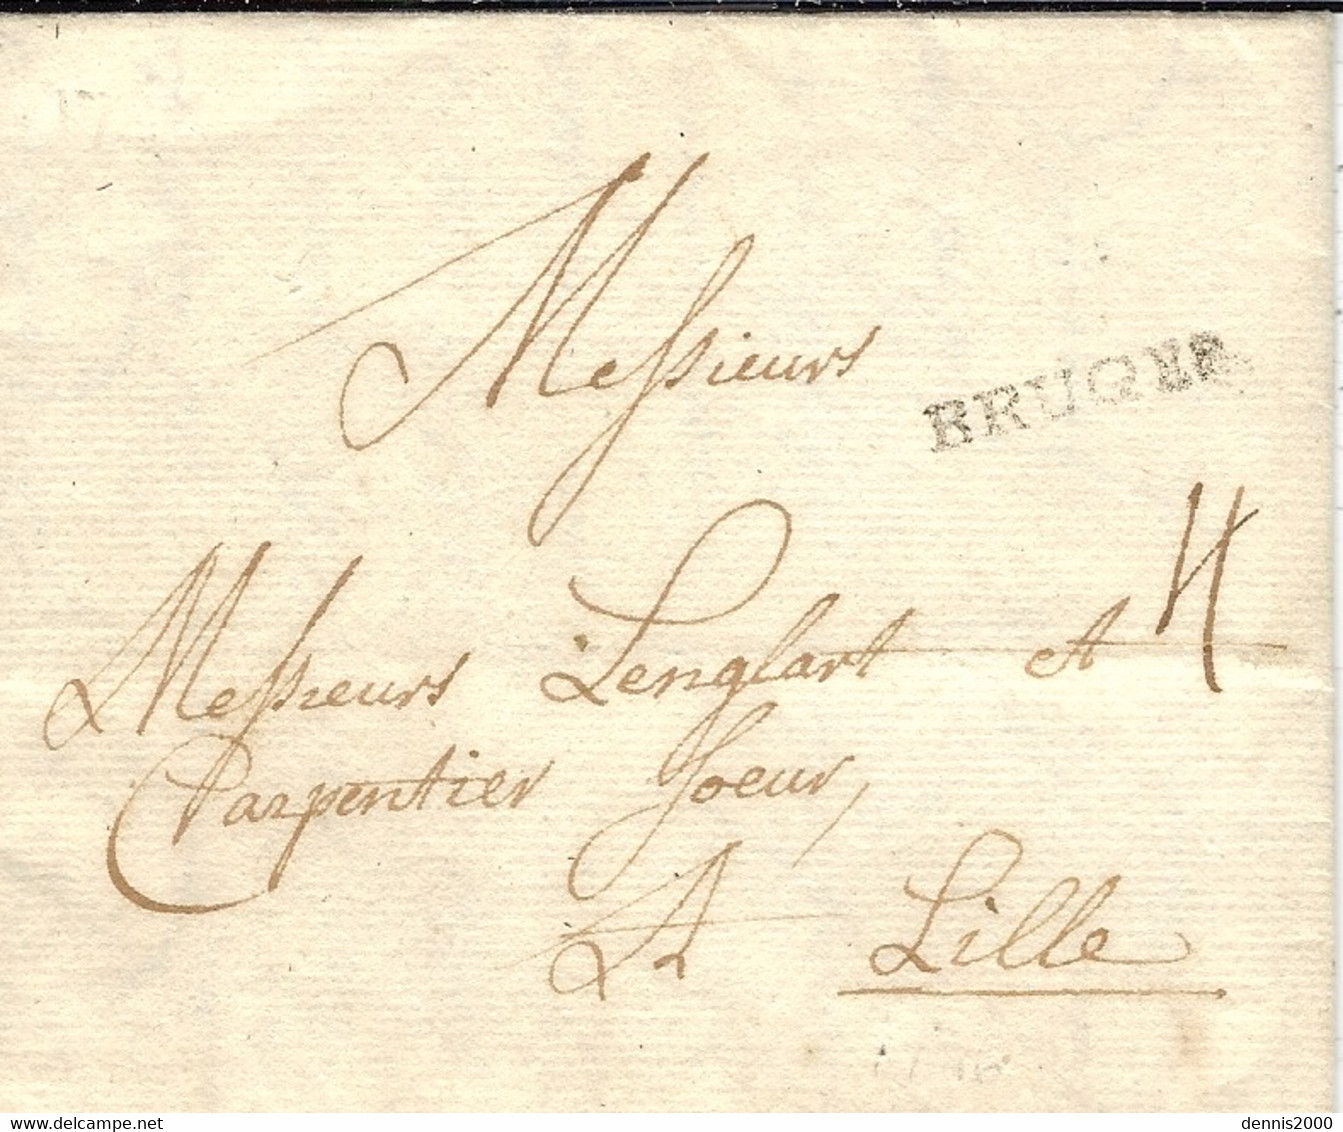 Messieurs
BRUGES
4
Messieurs Lenglart et
Carpentier Soeur,
A Lille
delcampe.net
dennis2000